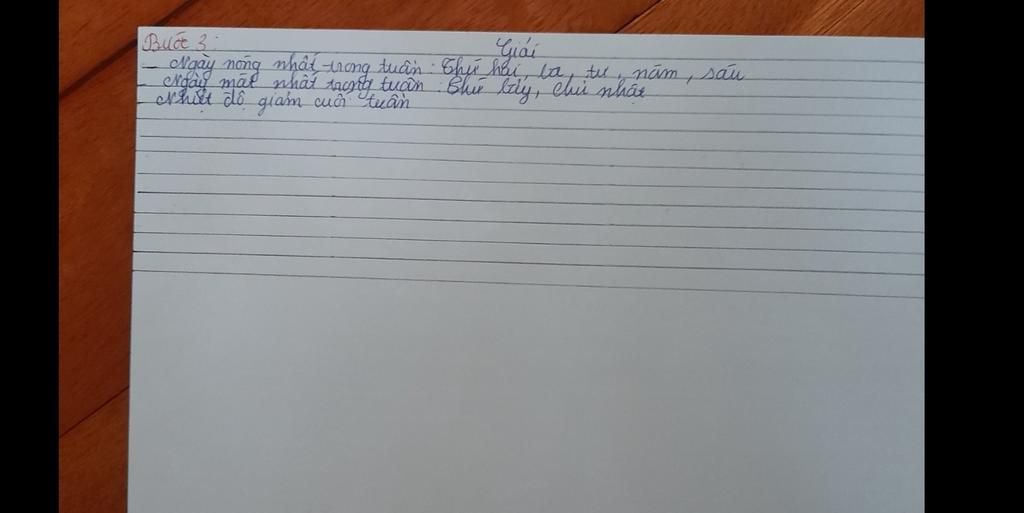 Bước 3:
Giải
- Ngày nóng nhất trong tuần: Thứ hai, ba, tư, năm, sáu
- Ngày mát nhất trong tuần: Thứ bảy, chủ nhật
- Nhiệt độ giảm cuối tuần